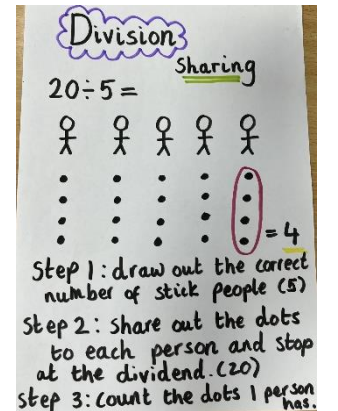 Division
Sharing
20÷5=
= 4
Step 1: draw out the correct
number of stick people (5)
Step 2: Share out the dots
to each person and stop
at the dividend. (20)
Step 3: Count the dots 1 person
has.